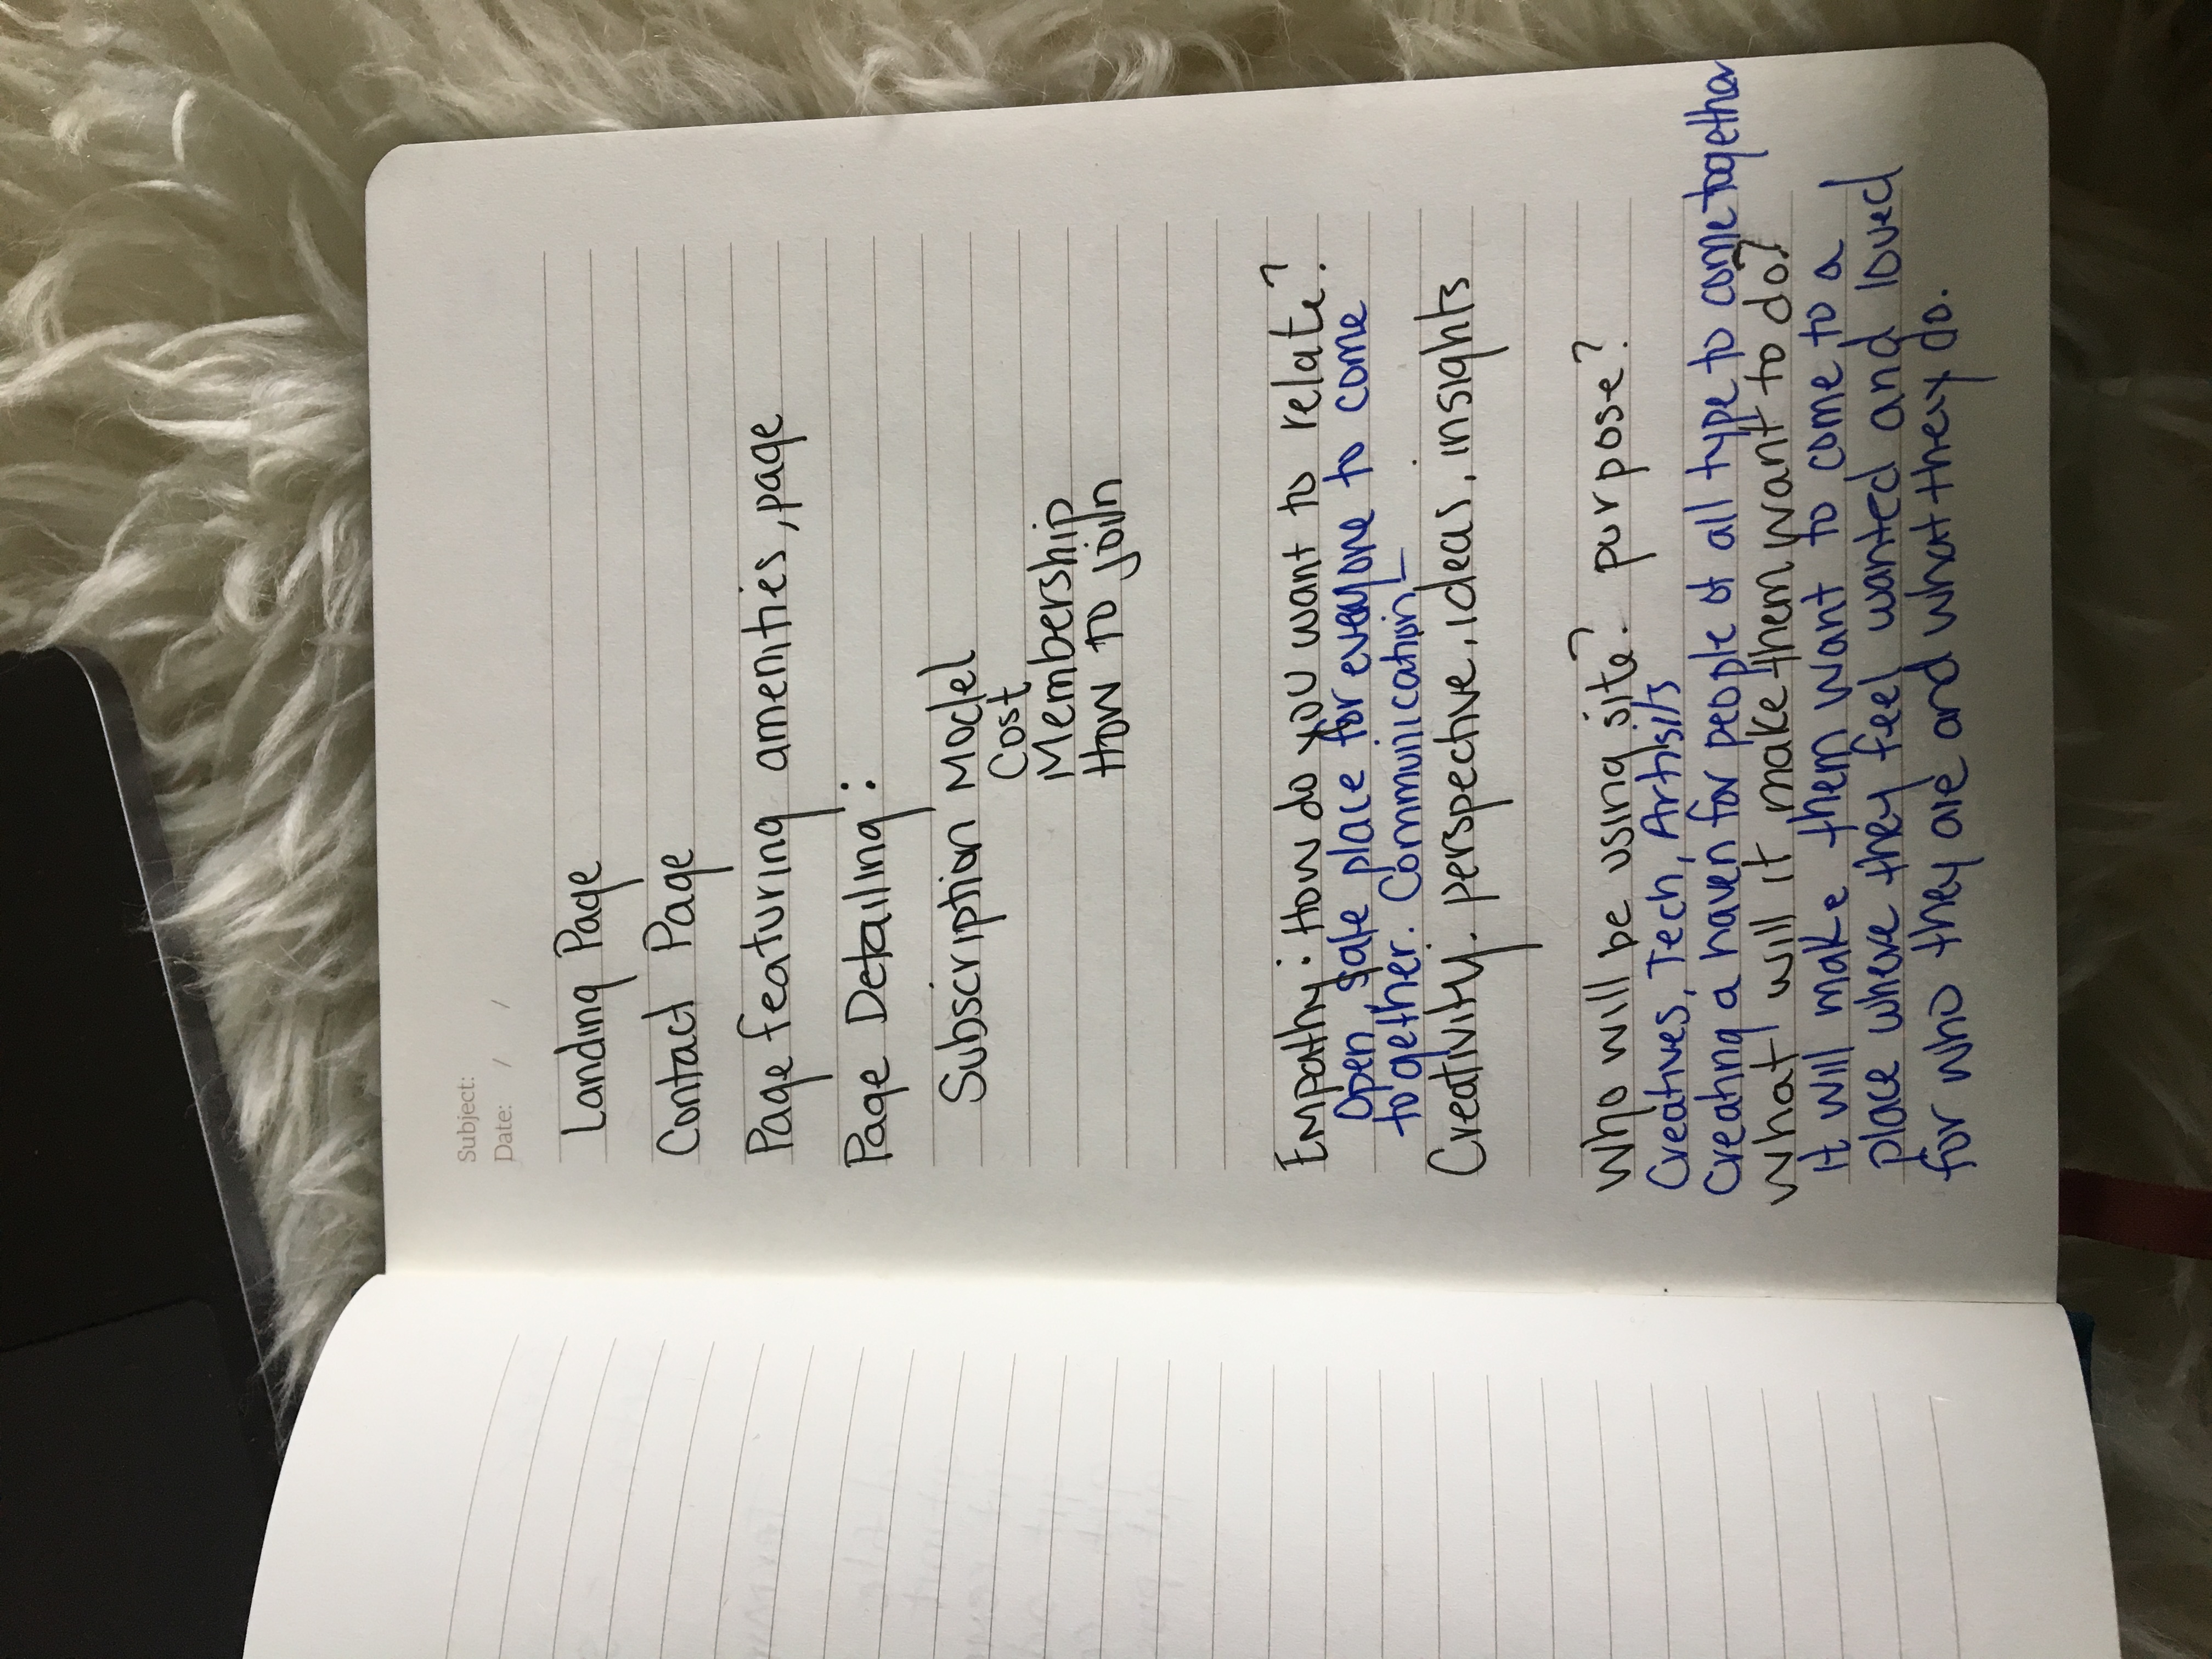 Subject:
Date: / /
Landing Page
Contact Page
Page featuring amenities, page
Page Detailing:
Subscription Model
Cost
Membership
How to join
Empathy: How do you want to relate?
Open safe place for everyone to come
together. Communication
Creativity. perspective, ideas, insights
Who will be using site? purpose?
Creatives, Tech, Artisits
Creating a haven for people of all type to come together
What will it make them want to do?
It will make them want to come to a
place where they feel wanted and loved
for who they are and what they do.